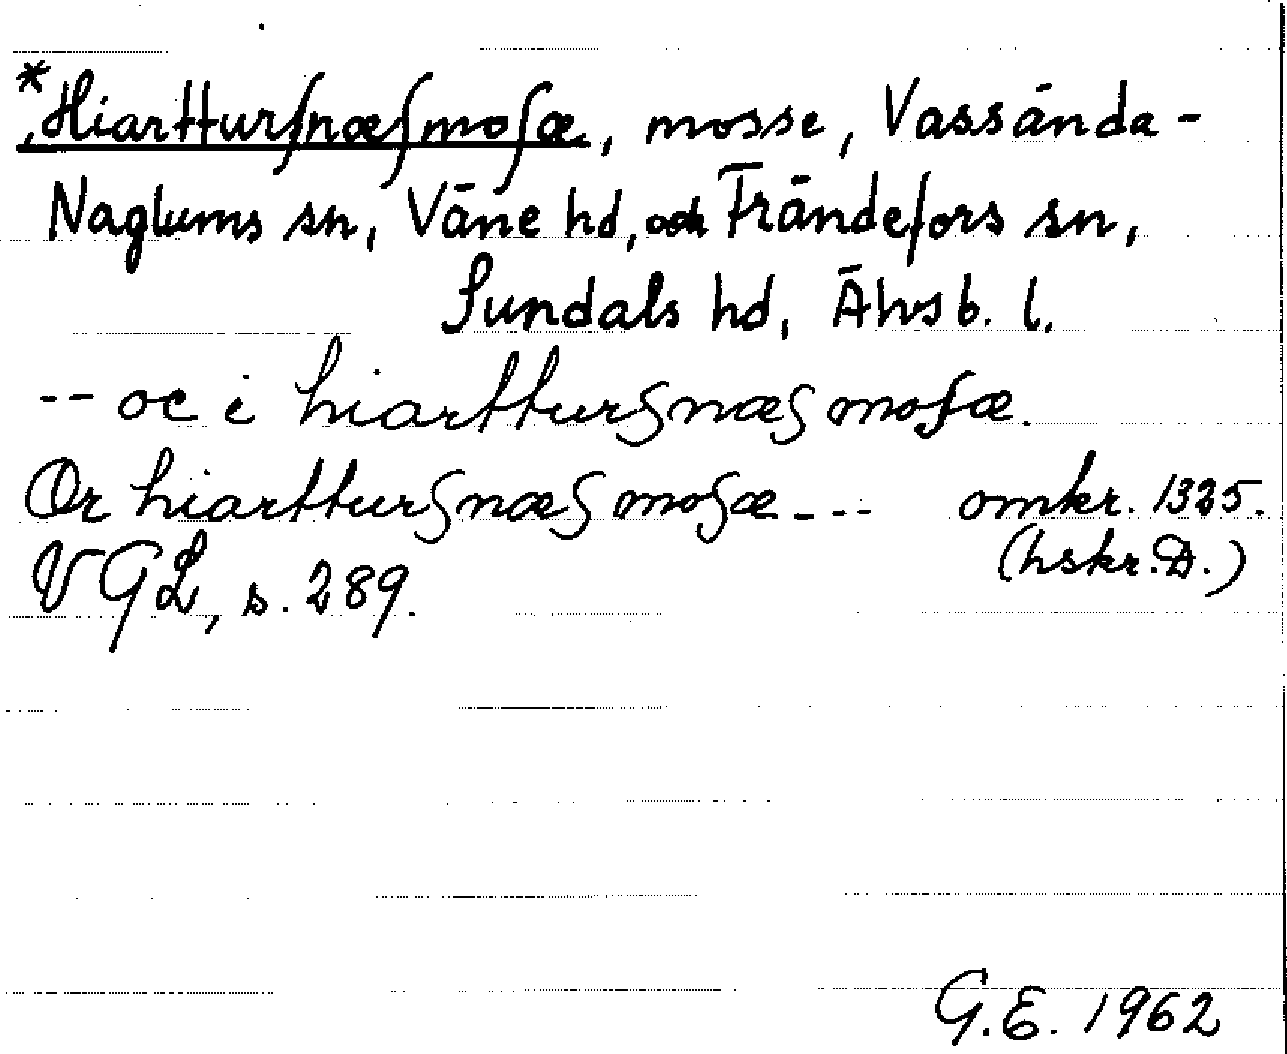 *Hiartturſnæſmoſæ, mosse, Vassända-
Naglums sn, Väne hd, och Frändefors sn,
Sundals hd, Älvsb. l.
-- oc i hiartturſnæſ moſæ.
Or hiartturſnæſ moſæ --- omkr. 1325.
(hskr. D.)
VGL, s. 289.
G.E. 1962